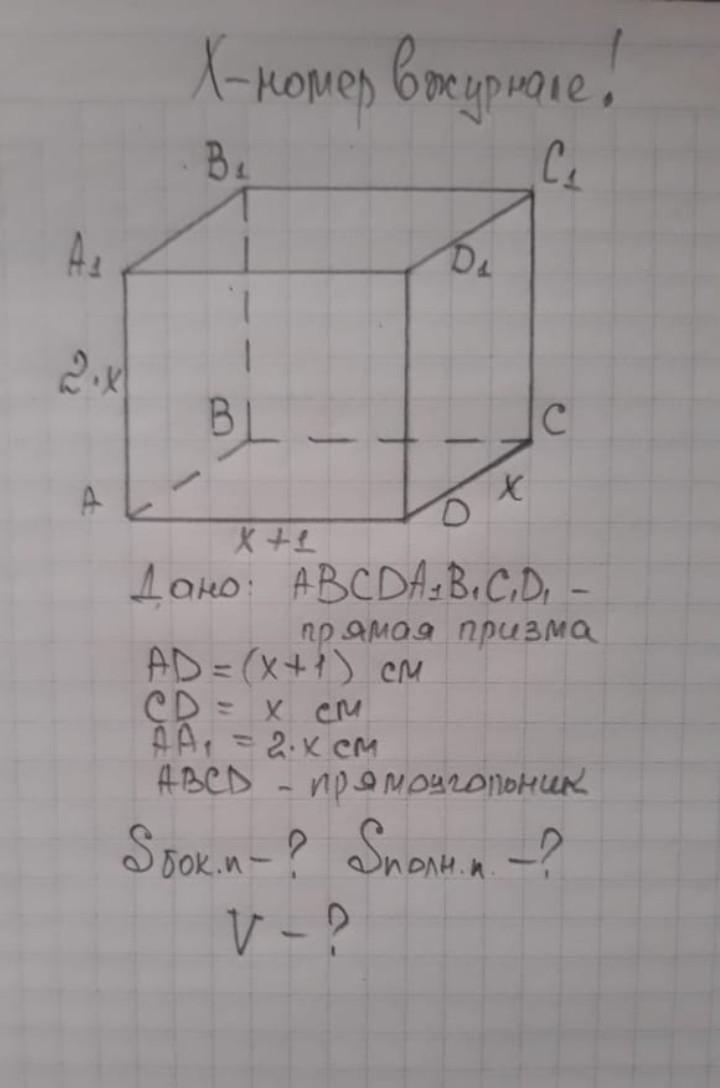 X-номер в журнале!
B₁ C₁
A₁ D₁
2·x
B C
A D x
x+1
Дано: ABCDA₁B₁C₁D₁ -
прямая призма
AD = (x+1) см
CD = x см
AA₁ = 2·x см
ABCD - прямоугольник
Sбок.п - ? Sполн.п. - ?
V - ?